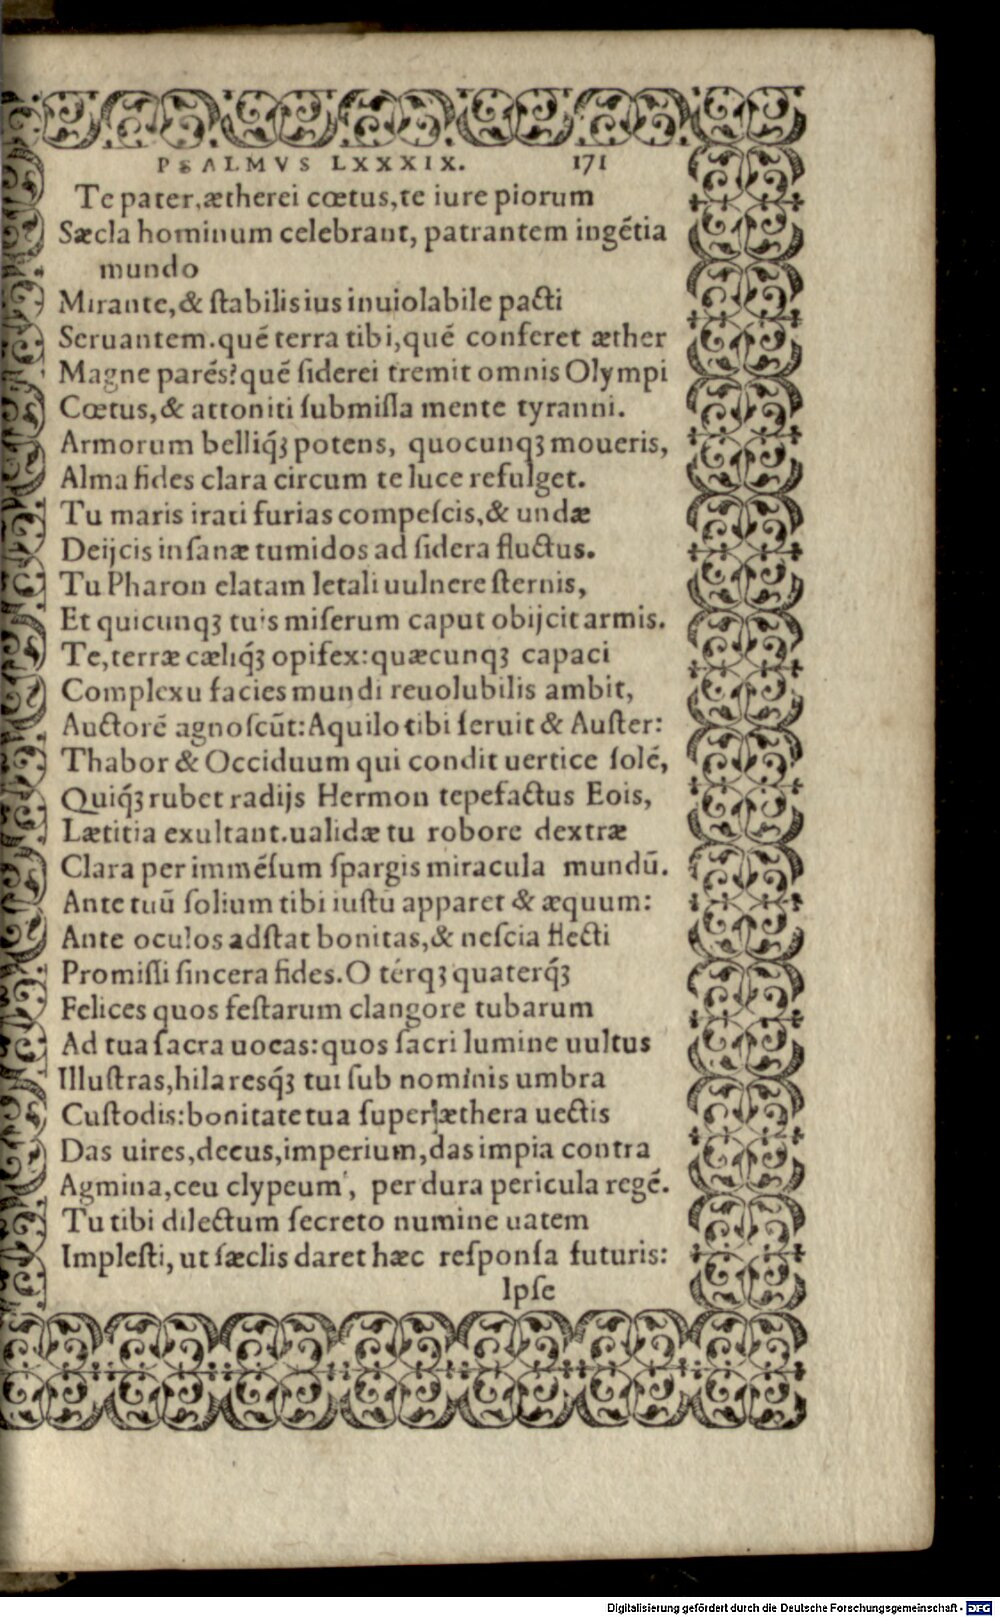 PSALMVS LXXXIX. 171
Te pater, ætherei cœtus, te iure piorum
Sæcla hominum celebrant, patrantem ingētia
mundo
Mirante, & ſtabilis ius inuiolabile pacti
Seruantem. quē terra tibi, quē conferet æther
Magne parēs? quē ſiderei tremit omnis Olympi
Cœtus, & attoniti ſubmiſſa mente tyranni.
Armorum belliq́ꝫ potens, quocunqꝫ moueris,
Alma fides clara circum te luce refulget.
Tu maris irati furias compeſcis, & undæ
Deijcis inſanæ tumidos ad ſidera fluctus.
Tu Pharon elatam letali uulnere ſternis,
Et quicunqꝫ tuis miſerum caput obijcit armis.
Te, terræ cæliq́ꝫ opifex: quæcunqꝫ capaci
Complexu facies mundi reuolubilis ambit,
Auctorē agnoſcūt: Aquilo tibi ſeruit & Auſter:
Thabor & Occiduum qui condit uertice ſolē,
Quiq́ꝫ rubet radijs Hermon tepefactus Eois,
Lætitia exultant. ualidæ tu robore dextræ
Clara per immēſum ſpargis miracula mundū.
Ante tuū ſolium tibi iuſtū apparet & æquum:
Ante oculos adſtat bonitas, & neſcia flecti
Promiſſi ſincera fides. O térqꝫ quaterq́ꝫ
Felices quos feſtarum clangore tubarum
Ad tua ſacra uocas: quos ſacri lumine uultus
Illuſtras, hilaresq́ꝫ tui ſub nominis umbra
Cuſtodis: bonitate tua ſuper æthera uectis
Das uires, decus, imperium, das impia contra
Agmina, ceu clypeum, per dura pericula regē.
Tu tibi dilectum ſecreto numine uatem
Impleſti, ut ſæclis daret hæc reſponſa futuris:
Ipſe
Digitalisierung gefördert durch die Deutsche Forschungsgemeinschaft - DFG